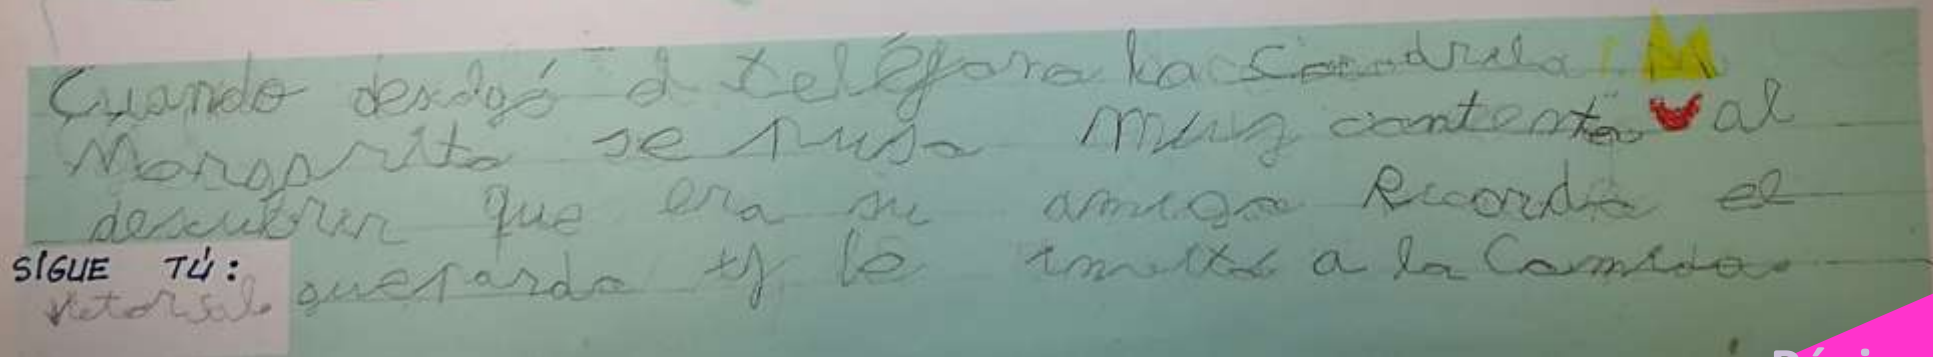 Cuando descolgó el teléfono la Cocodrila
Margarita se puso muy contenta al
descubrir que era su amigo Ricardo el
SIGUE TÚ:
guepardo y le invitó a la Comida.